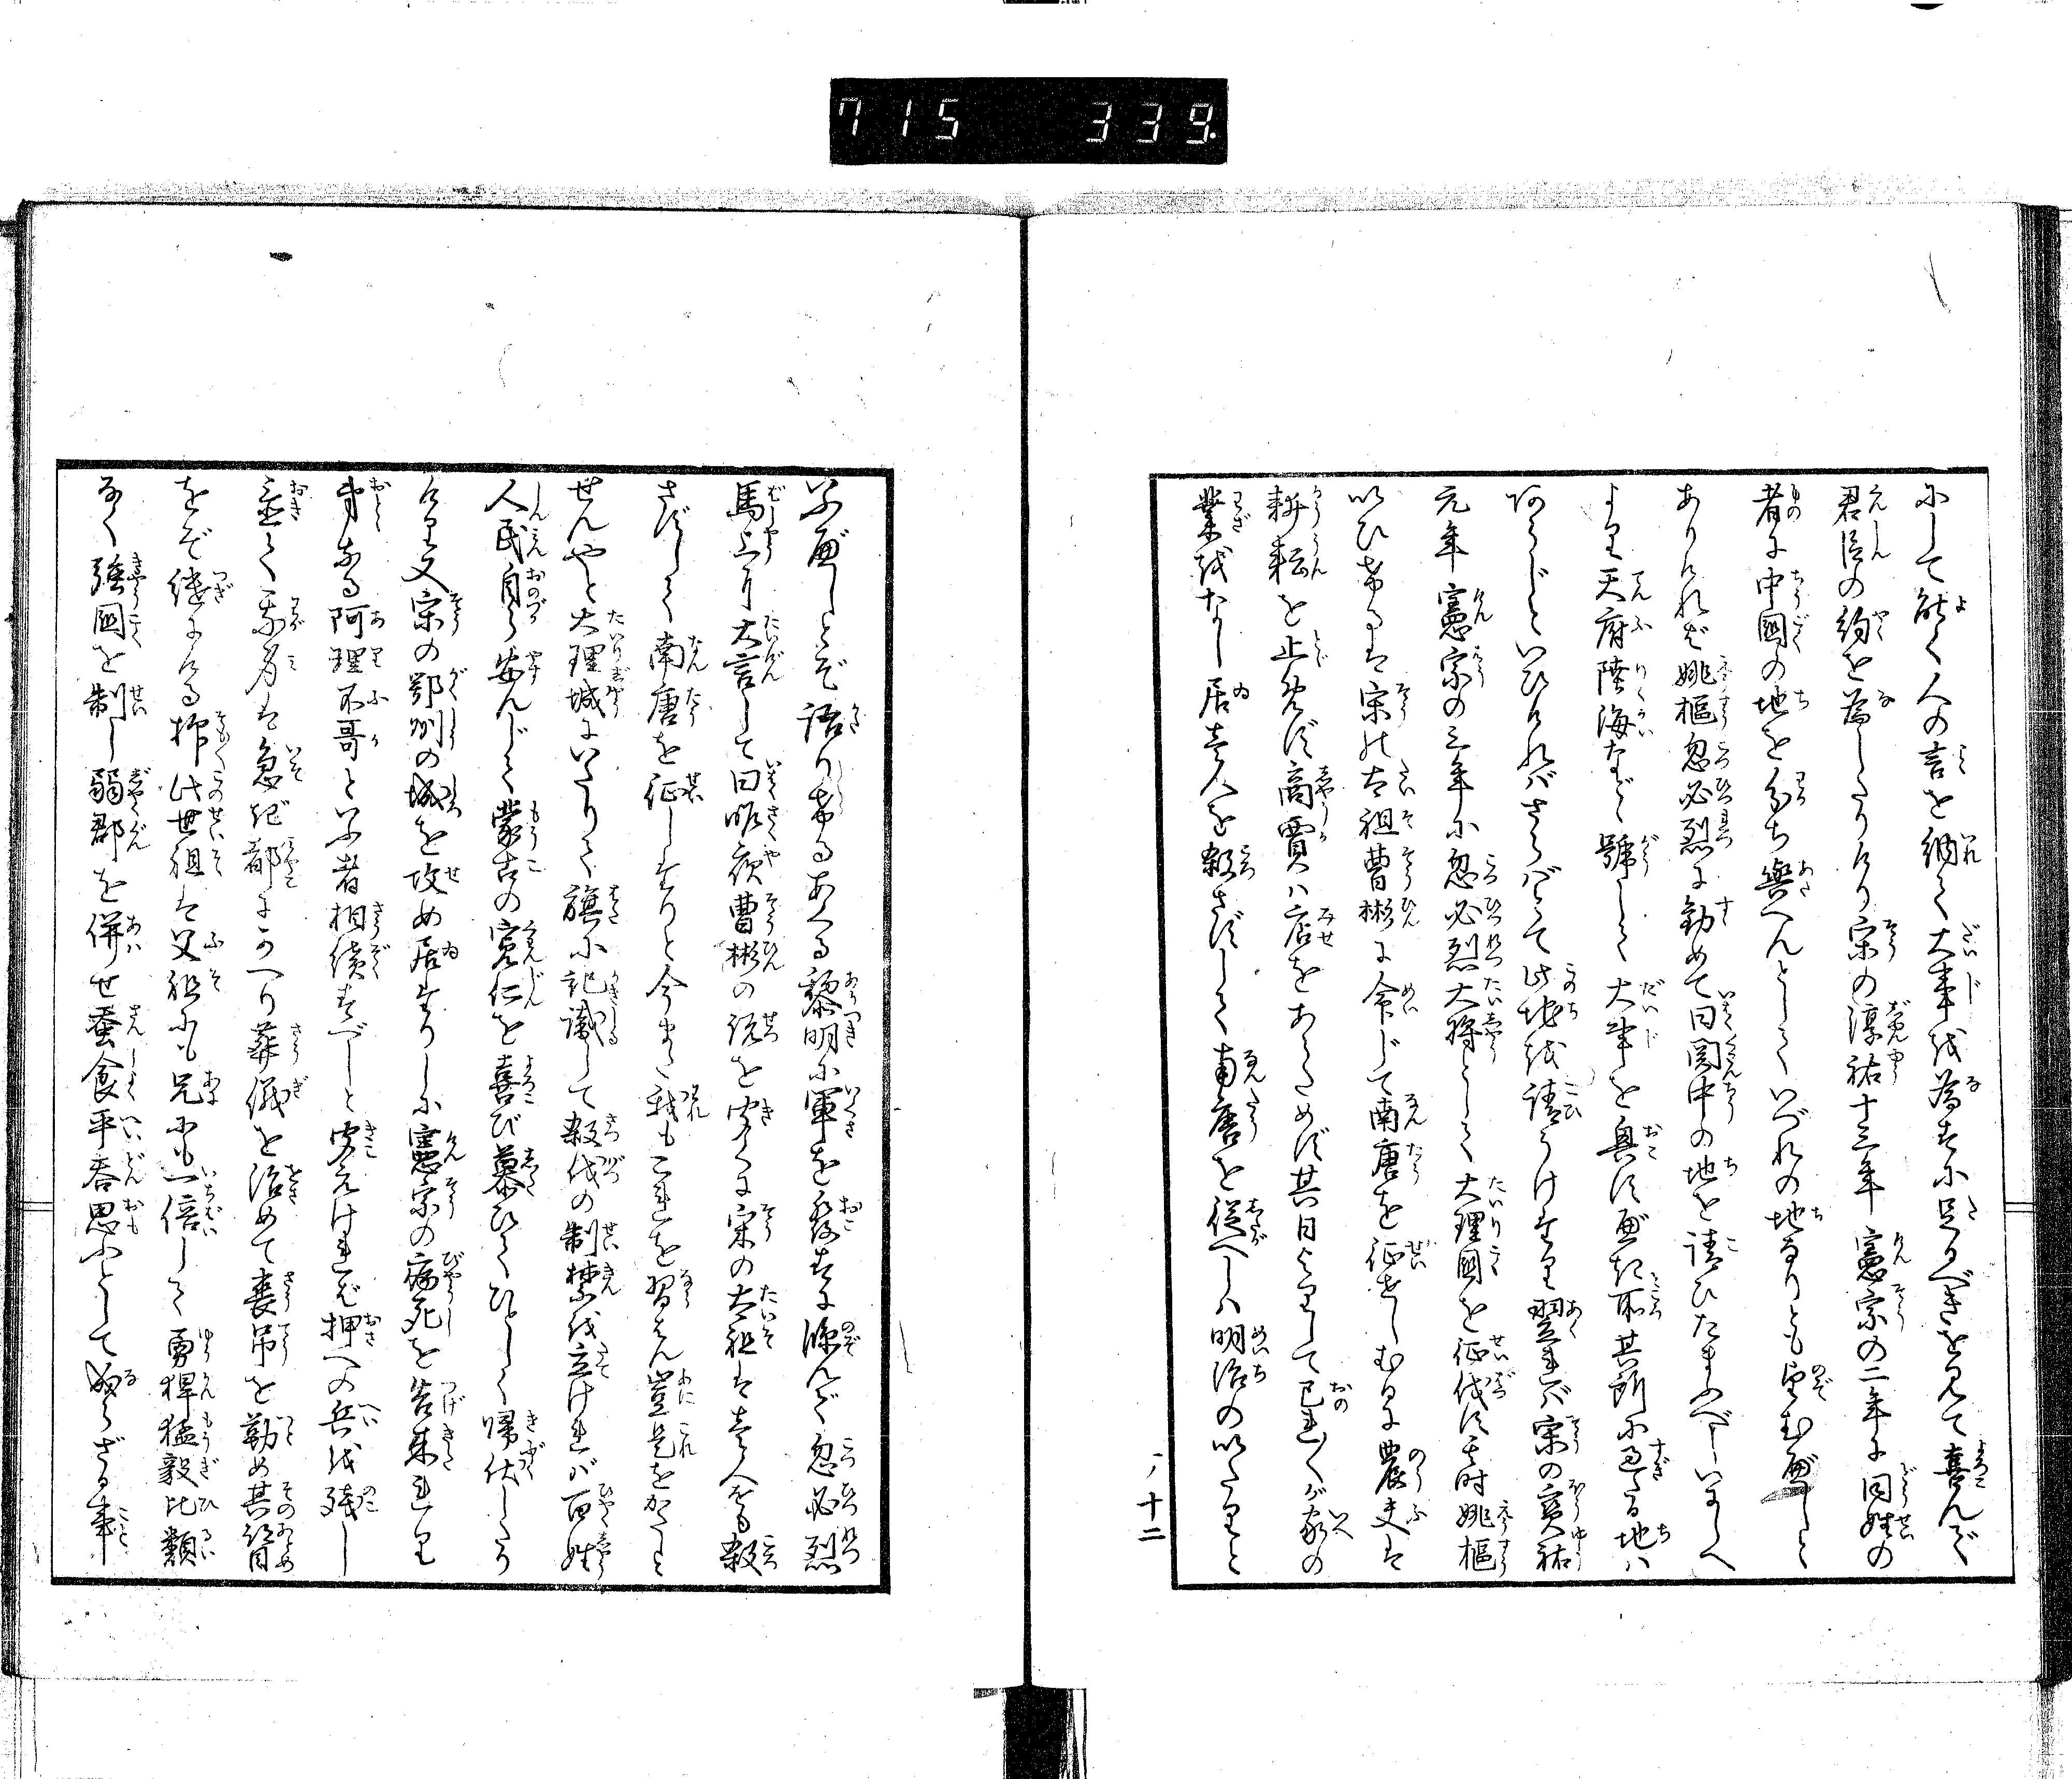 715 339.
にして能く人の言を納れて大事を為すに足るべきを見て喜んで
君臣の約を為したりけり宋の淳祐十三年憲宗の二年に同姓の
者に中國の地を分ち與へんとしていづれの地なりとも望むべしと
ありければ姚樞忽必烈に勧めて曰関中の地を請ひたまふべしいにしへ
より天府陸海など號して大事を興すべき所其所に過たる地は
あらじといひければさらばとて此地を請うけたり翌れば宋の寳祐
元年憲宗の三年に忽必烈大将として大理國を征伐す其時姚樞
いひけるは宋の太祖曹彬に命じて南唐を征せしむるに農夫は
耕耘を止めず商賈は店をあらためず其日よりして己れ〳〵が家の
業をなし居壱人を殺さずして南唐を従へしは明治のいたりと
十二
いふべしとぞ語りけるあくる黎明に軍を發すに臨んで忽必烈
馬上より大言して曰昨夜曹彬の説を聞くに宋の太祖は壱人をも殺
さずして南唐を征したりと今また我もこれを習はん豈是をかたしと
せんやと大理城にいたりて旗に記識して殺伐の制禁を立ければ百姓
人民自ら安んじて蒙古の寛仁を喜び慕ひてひとしく帰伏したり
けり又宋の鄂州の城を攻め居たりしに憲宗の病死を告来れり
弟なる阿理不哥といふ者相續すべしと聞えければ押への兵を残し
置て我身は急ぎ都にかへり葬儀を治めて喪吊を勤め其跡目
をぞ継にける抑此世祖は父祖にも兄にも一倍して勇悍猛毅比類
なく強國を制し弱郡を併せ蚕食平呑思ふとして成らざる事